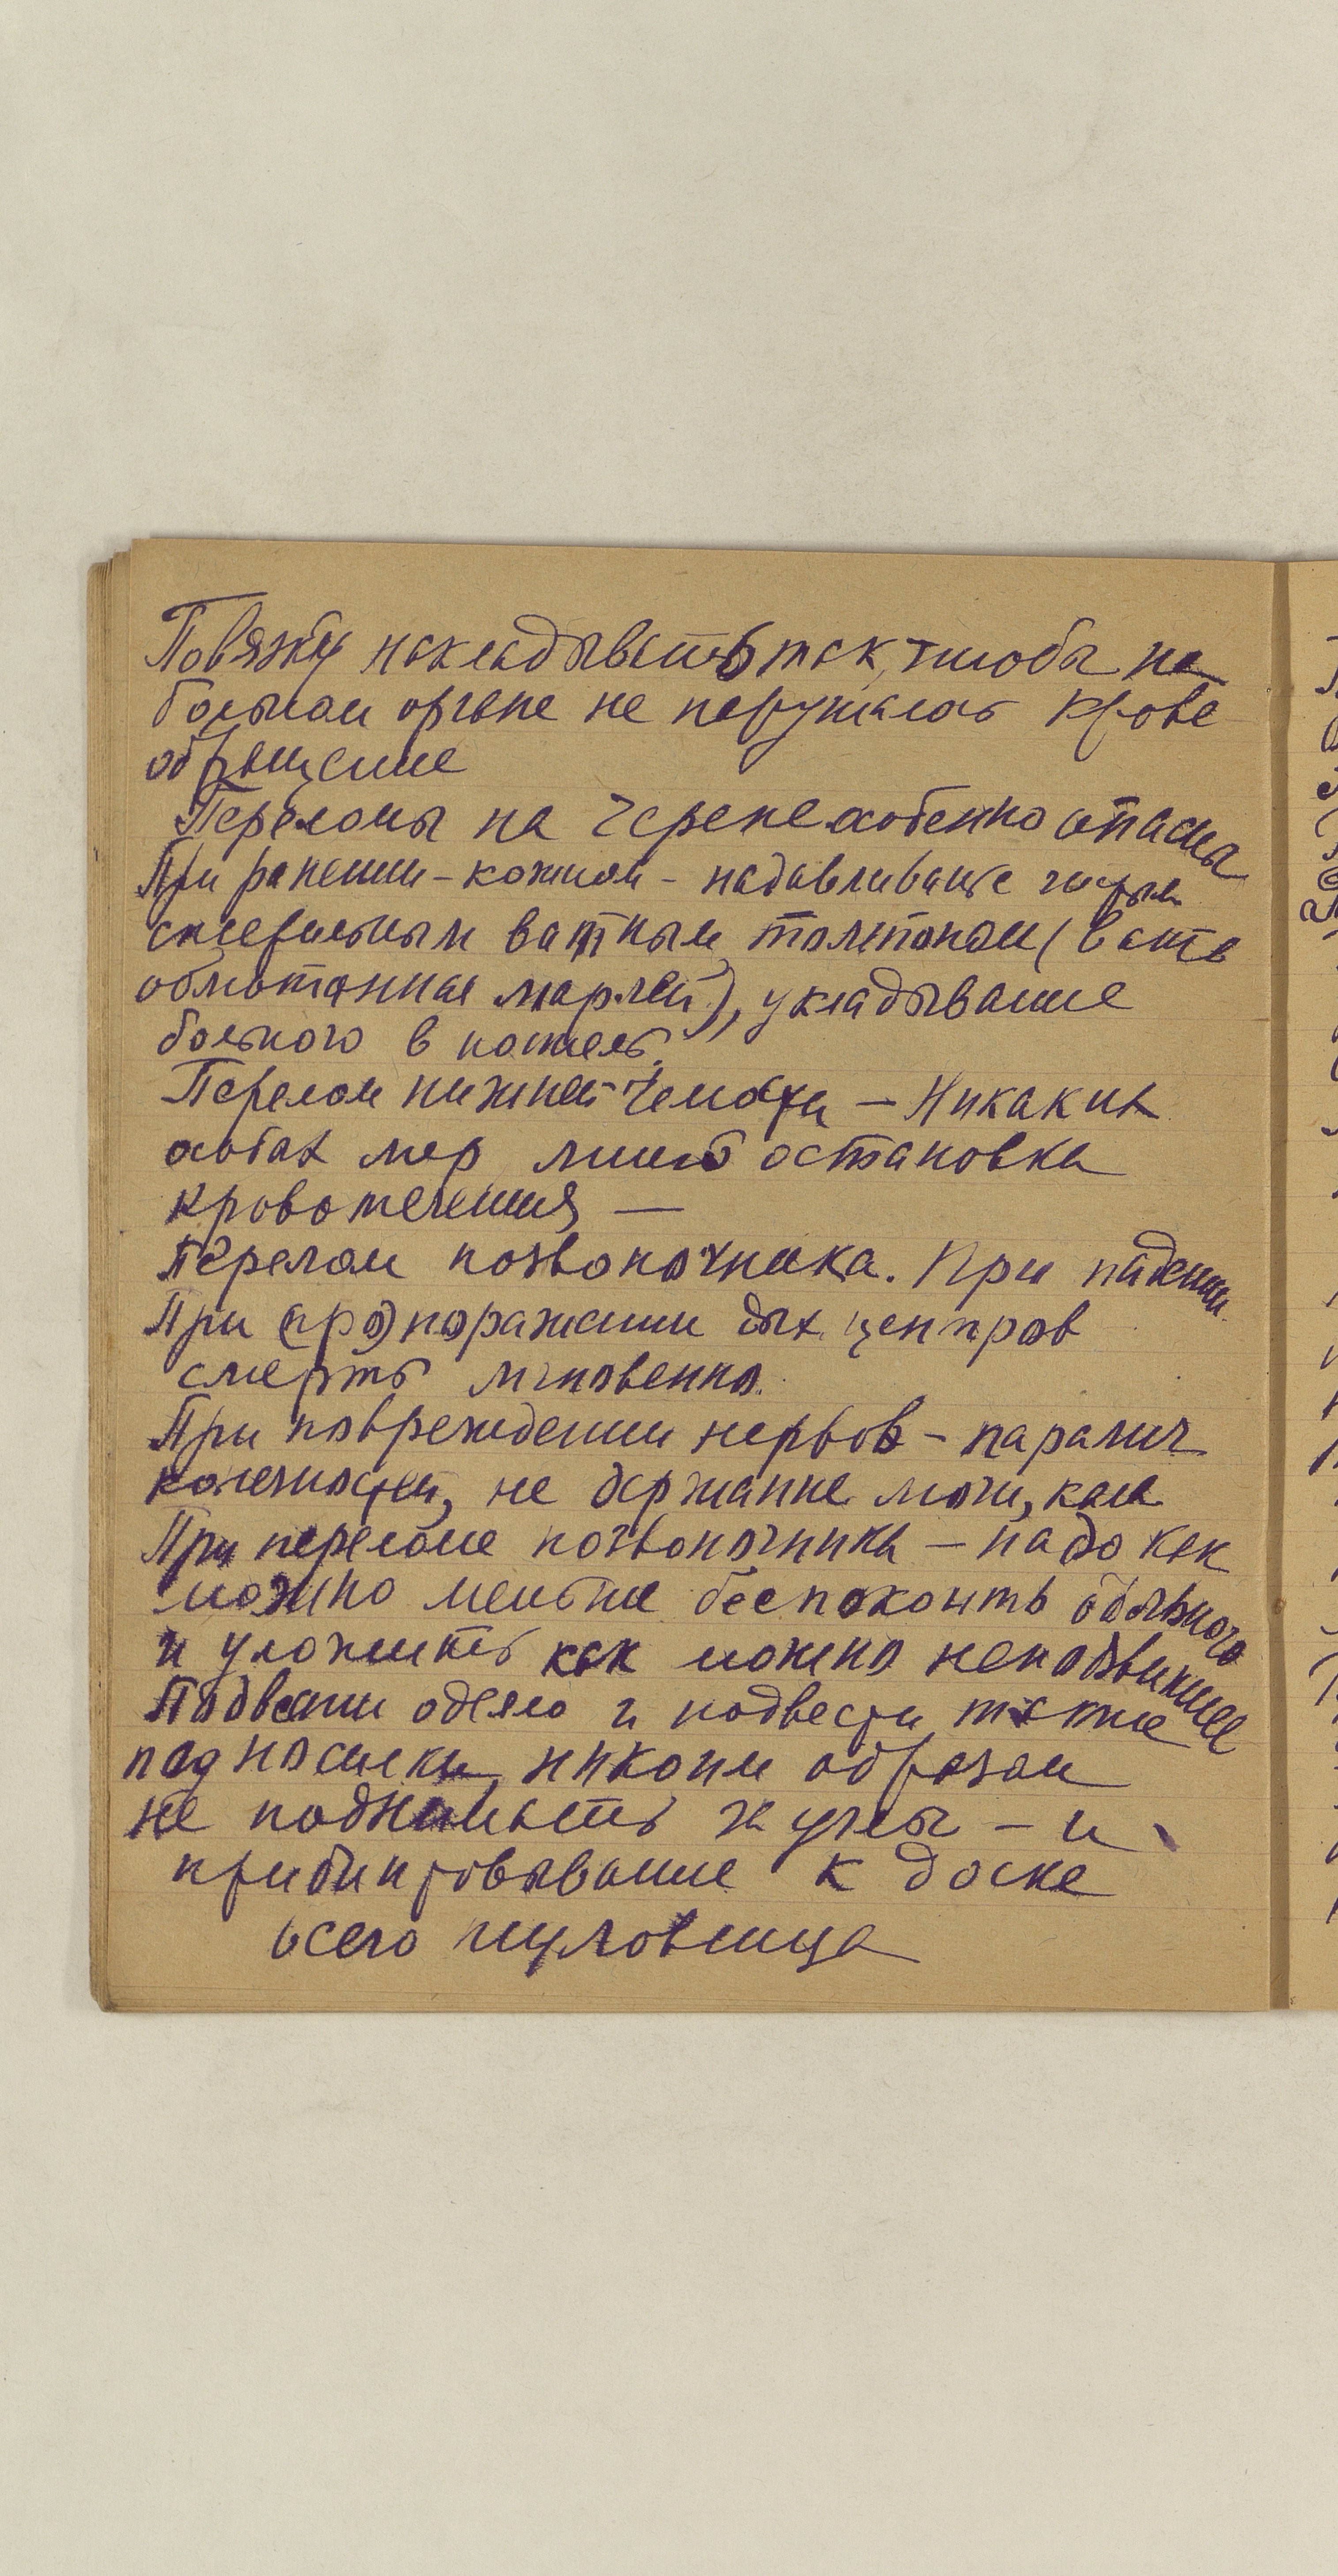 Повязку накладывать так, чтобы на
больном органе не нарушалось крове
обращение
Переломы на черепе особенно опасны
При ранении – кожном – надавливание
стерильным ватным тампоном (вата
обмотанная марлей), укладывание
больного в постель.
Перелом нижней челюсти – Никаких
особых мер лишь остановка
кровотечения —
Перелом позвоночника. При падении
При (про) поражении дых. центров
смерть мгновенно.
При повреждении нервов – паралич
конечностей, не держание мочи, кала
При переломе позвоночника – надо как
можно меньше беспокоить больного
и уложить как можно неподвижнее
Подвести одеяло и подвести также
под носилки, никоим образом
не поднимать – и
прибинтовывание к доске
всего туловища